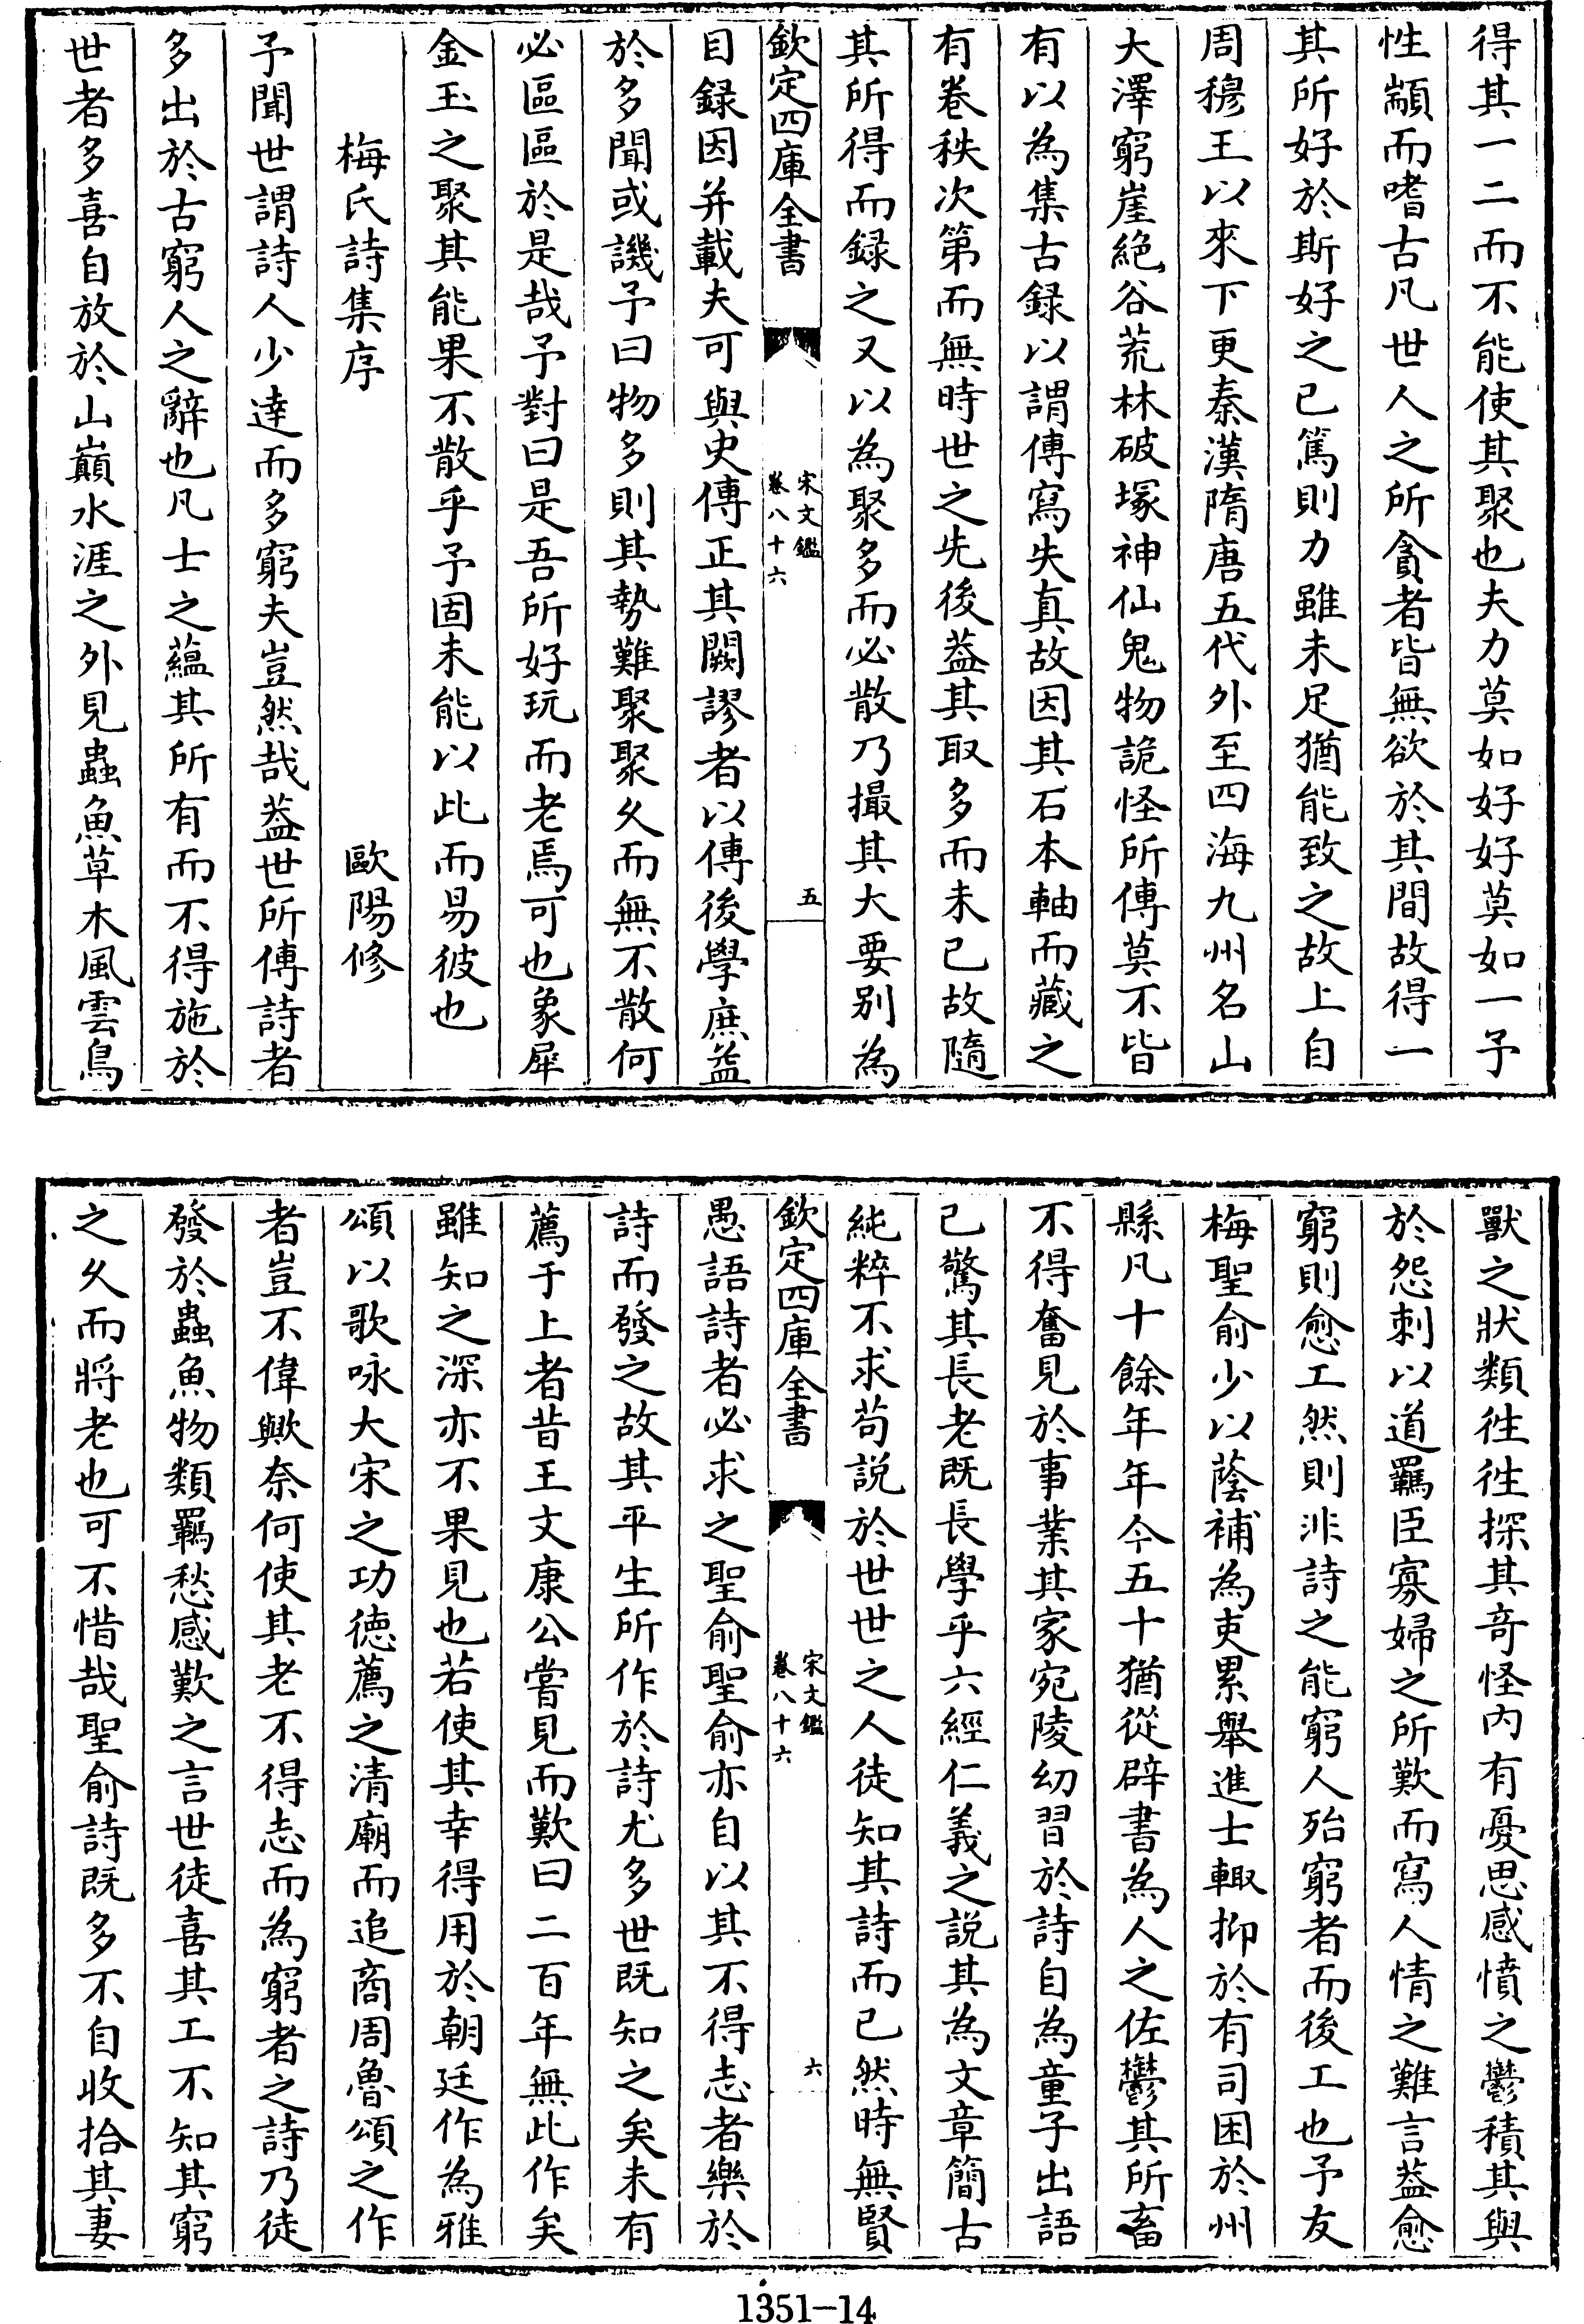 得其一二而不能使其聚也夫力莫如好好莫如一予
性顓而嗜古凡世人之所貪者皆無欲於其間故得一
其所好於斯好之已篤則力雖未足猶能致之故上自
周穆王以來下更秦漢隋唐五代外至四海九州名山
大澤窮崖絕谷荒林破塚神仙鬼物詭怪所傳莫不皆
有以為集古録以謂傳寫失真故因其石本軸而藏之
有卷秩次第而無時世之先後葢其取多而未已故隨
其所得而録之又以為聚多而必散乃撮其大要别為
欽定四庫全書
宋文鑑
卷八十六
五
目録因并載夫可與史傳正其闕謬者以傳後學庶益
於多聞或譏予曰物多則其勢難聚聚久而無不散何
必區區於是哉予對曰是吾所好玩而老焉可也象犀
金玉之聚其能果不散乎予固未能以此而易彼也
梅氏詩集序 歐陽修
予聞世謂詩人少達而多窮夫豈然哉葢世所傳詩者
多出於古窮人之辭也凡士之藴其所有而不得施於
世者多喜自放於山巔水涯之外見蟲魚草木風雲鳥
獸之狀類徃徃探其竒怪内有憂思感憤之鬱積其興
於怨刺以道羈臣寡婦之所歎而寫人情之難言葢愈
窮則愈工然則非詩之能窮人殆窮者而後工也予友
梅聖俞少以蔭補為吏累舉進士輙抑於有司困於州
縣凡十餘年年今五十猶從辟書為人之佐鬱其所畜
不得奮見於事業其家宛陵幼習於詩自為童子出語
已驚其長老既長學乎六經仁義之説其為文章簡古
純粹不求苟説於世世之人徒知其詩而已然時無賢
欽定四庫全書
宋文鑑
卷八十六
六
愚語詩者必求之聖俞聖俞亦自以其不得志者樂於
詩而發之故其平生所作於詩尤多世既知之矣未有
薦于上者昔王文康公嘗見而歎曰二百年無此作矣
雖知之深亦不果見也若使其幸得用於朝廷作為雅
頌以歌咏大宋之功徳薦之清廟而追商周魯頌之作
者豈不偉歟奈何使其老不得志而為窮者之詩乃徒
發於蟲魚物類羈愁感歎之言世徒喜其工不知其窮
之久而將老也可不惜哉聖俞詩既多不自收拾其妻
1351-14